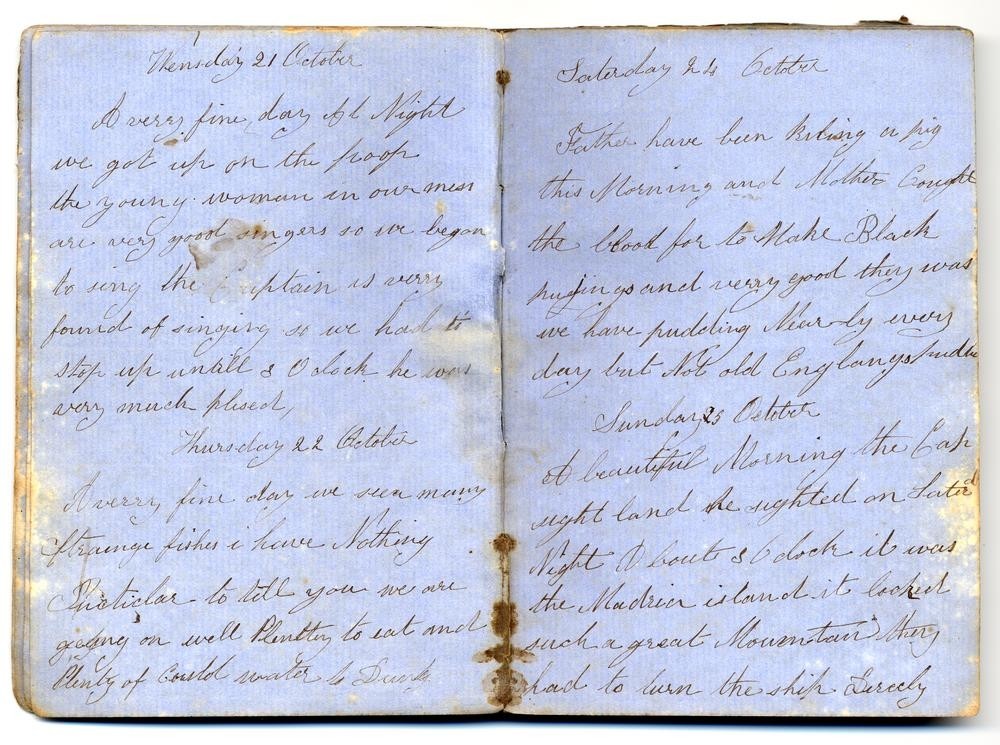 Wensday 21 October
A verry fine day At Night
we got up on the poop
the young woman in our mess
are very good singers so we began
to sing the Captain is verry
found of singing so we had to
stop up untill 8 O clock he was
very much plised,
Thursday 22 October
A verry fine day we seen many
straenge fishes i have Nothing
Puticlar to tell you we are
going on well Plentty to eat and
Plenty of Could water to Drink
Saterday 24 October
Father have been Kiling a pig
this Morning and Mother Cought
the blood for to Make Black
pudjings and verry good they was
we have pudding Near-ly every
day but Not old Englangs
Sunday 25 October
A beautiful Morning the Cap
sight land he sighted on Saterd
Night About 8 O clock it was
the Madria island it looked
such a great Mountain they
had to turn the ship Direcly